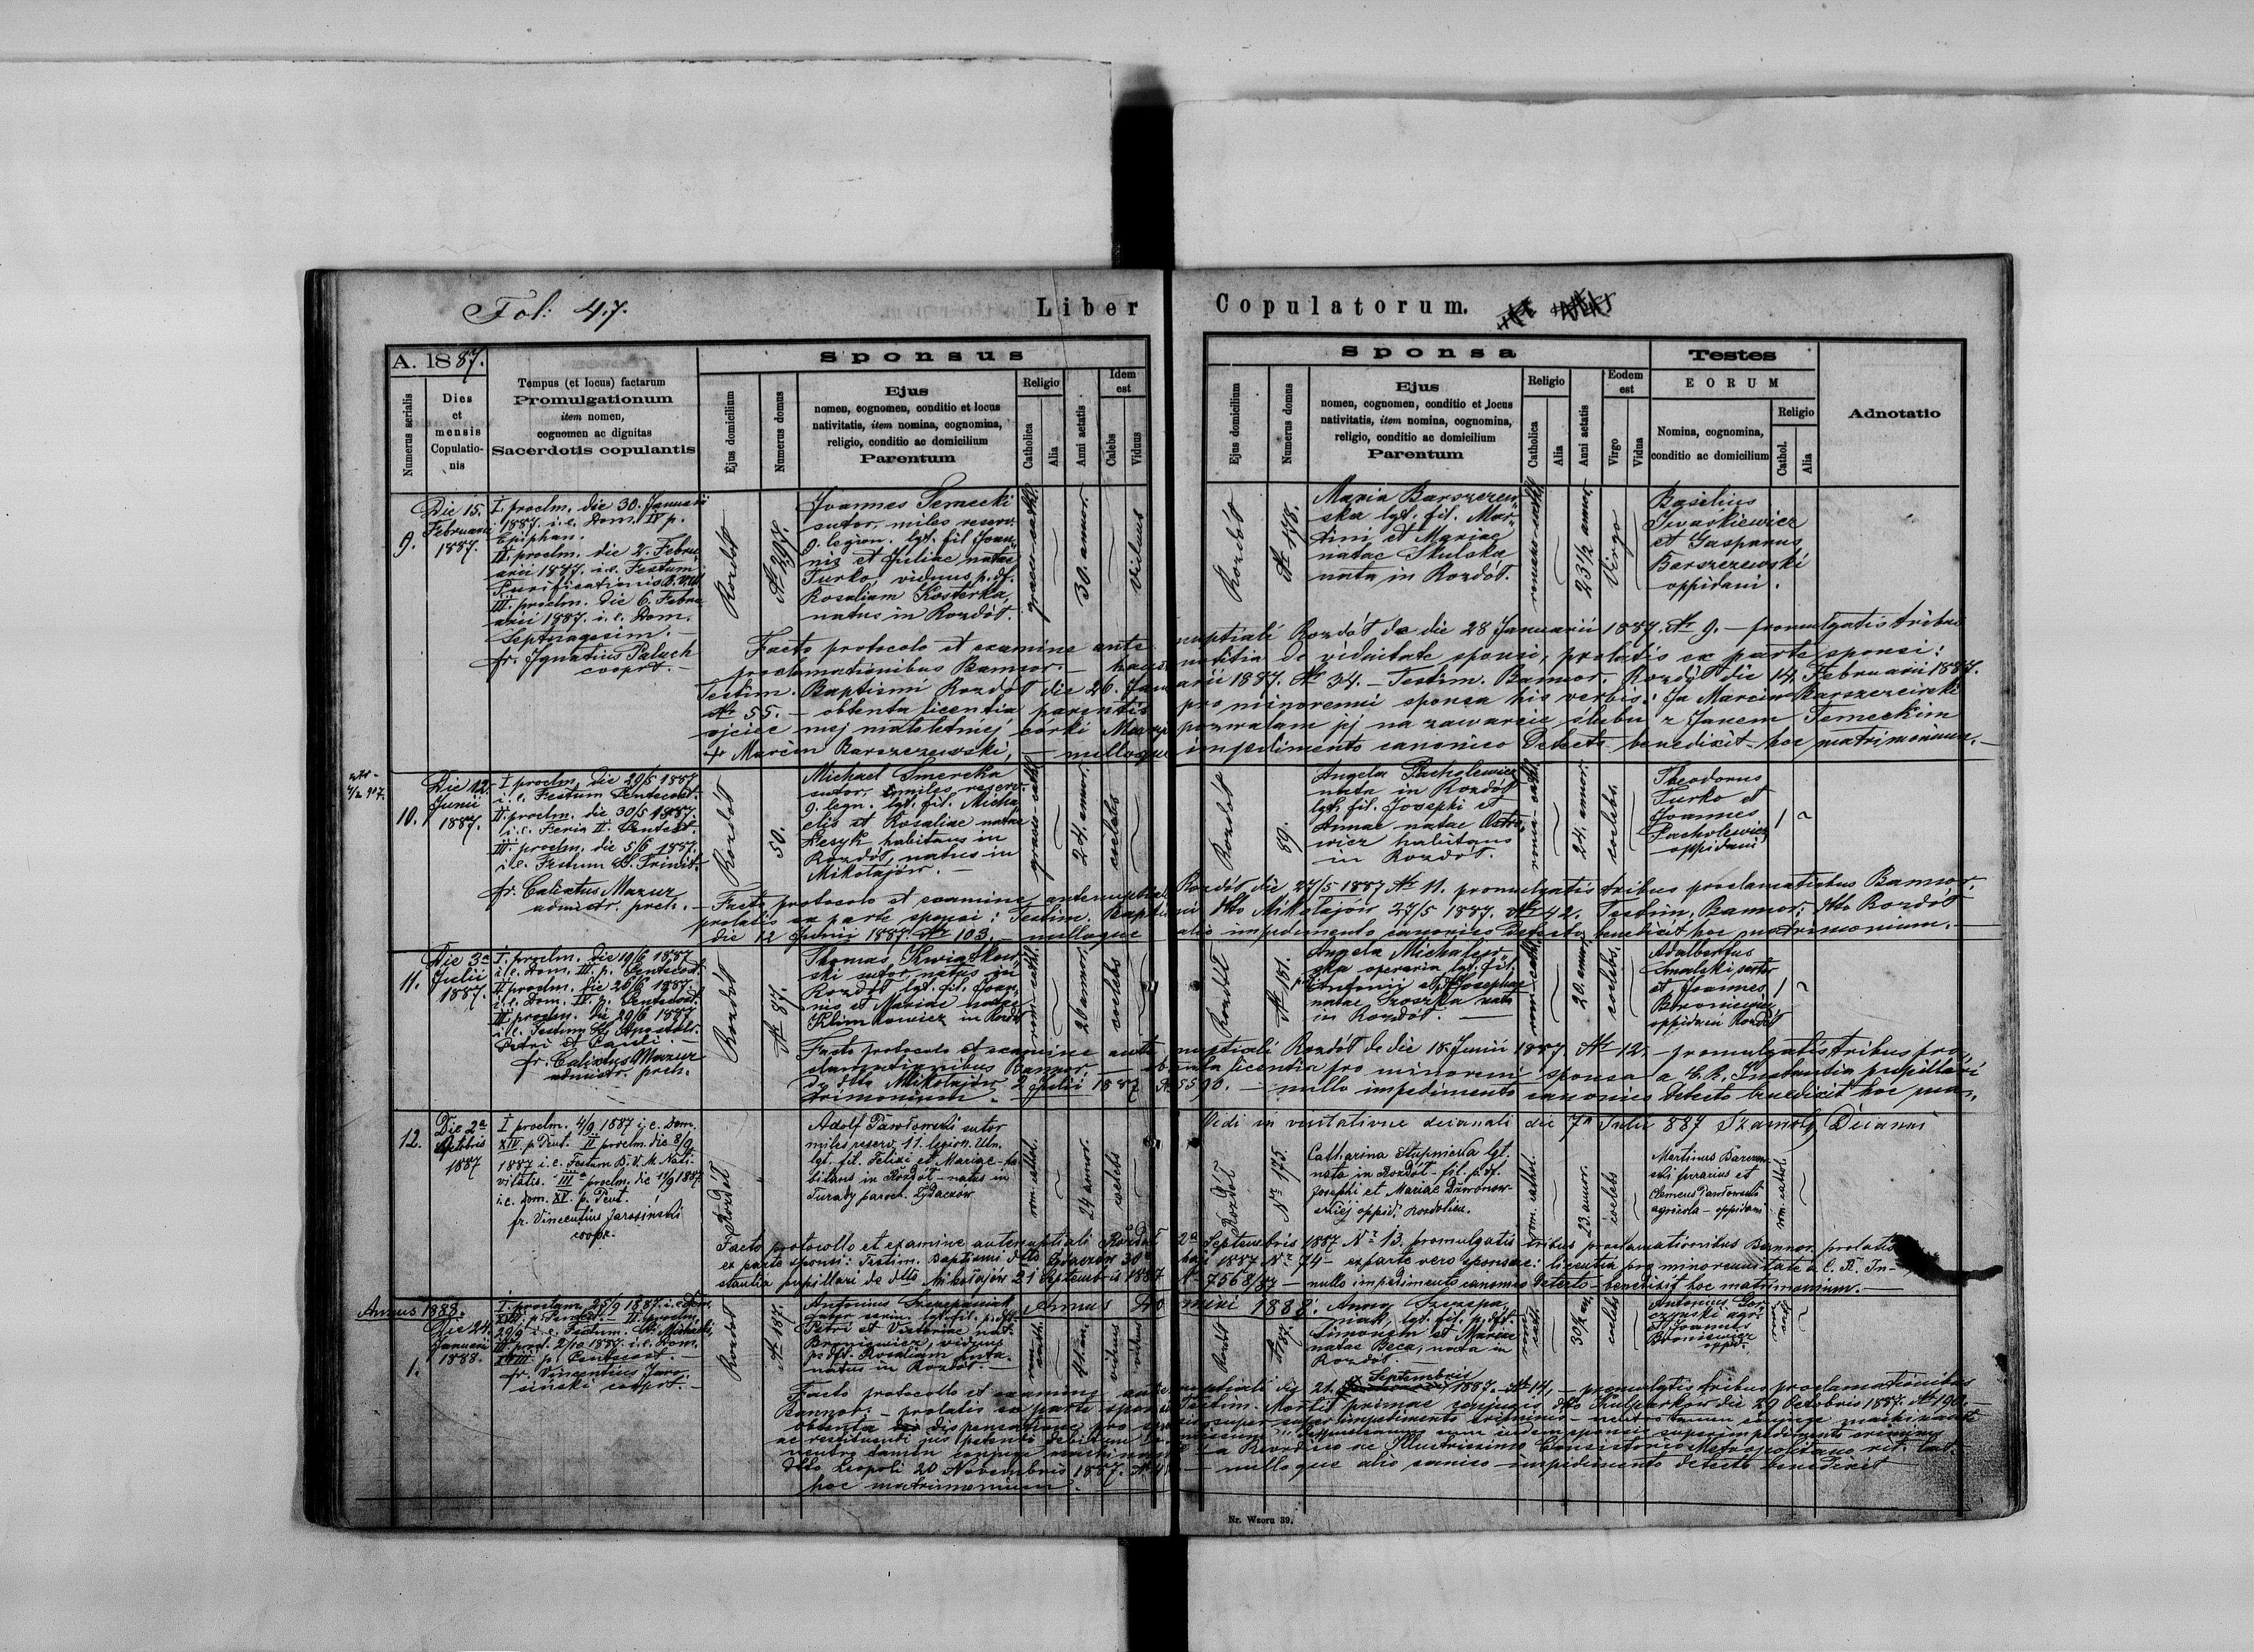 Fol: 47.
Liber Copulatorum.
A. 1887.
Numerus serialis
Dies
et
mensis
Copulatio-
nis
Tempus (et locus) factarum
Promulgationum
item nomen,
cognomen ac dignitas
Sacerdotis copulantis
Sponsus
Ejus domicilium
Numerus domus
Ejus
nomen, cognomen, conditio et locus
nativitatis, item nomina, cognomina,
religio, conditio ac domicilium
Parentum
Religio
Catholica
Alia
Anni aetatis
Idem
est
Calebs
Viduus
Sponsa
Ejus domicilium
Numerus domus
Ejus
nomen, cognomen, conditio et locus
nativitatis, item nomina, cognomina,
religio, conditio ac domicilium
Parentum
Religio
Catholica
Alia
Anni aetatis
Eodem
est
Virgo
Vidua
Testes
EORUM
Nomina, cognomina,
conditio ac domicilium
Religio
Cathol.
Alia
Adnotatio
9.
Die 15.
Februarii
1887.
I. proclm. die 30. Januarii
1887. i. e. Dom. IV p.
Epiphan.
II. proclm. die 2. Febru
arii 1887. i.e. Festum
Purificationis B.V.M.
III. proclm. die 6. Febru
arii 1887. i. e. Dom.
Septuagesim. -
fr. Ignatius Paluch
cooprt. -
Rozdół
№ 297.
Joannes Temecki
sutor, miles reserv.
9. legion. lgt. fil. Joan
nis et Juliae natae
Turko, viduus p. df.
Rosaliam Kosterka,
natus in Rozdół.
graeco-cathl.
30. annor.
viduus
Rozdół
№ 178.
Maria Barszczew
ska lgt. fil. Mar
tini et Mariae
natae Skulska
nata in Rozdół.
romano-cathl.
23 1/2 annor.
Virgo
Basilius
Iwaśkiewicz
et Gasparus
Barszczewski
oppidani.
Facto protocolo et examine ante nuptiali Rozdół de die 28 Januarii 1887. № 9. - promulgatis tribus
proclamationibus Bannor. - notitia de viduitate sponsi, prolatis ex parte sponsi:
Testim. Baptismi Rozdół die 26. Januarii 1887. № 34. - Testim. Bannor. Rozdół die 14. Februarii 1887.
№ 55. - obtenta licentia parentis pro minorenni sponsa his verbis: Ja Marcin Barszczewski
ojciec mej małoletniej córki Maryi pozwalam jej na zawarcie ślubu z Janem Temeckim
+ Marcin Barszczewski, - nulloque impedimento canonico detecto benedixit hoc matrimonium. -
10.
Die 12.
Junii
1887.
I proclm. die 29/5 1887
i. e. Festum Pentecost.
II. proclm. die 30/5 1887.
i. e. Feria II. Pentecst.
III. proclm. die 5/6 1887.
i. e. Festum SS. Trinit.
fr. Calixtus Mazur
admistr. prch. -
Rozdół
50.
Michael Smereka
sutor, miles reserv.
9. legn. lgt. fil. Micha
elis et Rosaliae natae
Łesyk, habitans in
Rozdół, natus in
Mikołajów. -
graeco-cathl.
24. annor.
coelebs
Rozdół
89.
Angela Pacholewicz
nata in Rozdół
lgt. fil. Josephi et
Annae natae Ostro
wicz habitans
in Rozdół.
roma-cathl.
24. annor.
coelebs.
Theodorus
Turko et
Joannes
Pacholewicz
oppidani
Facto protocolo et examine antenuptiali Rozdół die 27/5 1887 № 11. promulgatis tribus proclamatiobus Bannor.
prolatis ex parte sponsi: Testim. Baptismi dtto Mikołajów 27/5 1887. № 42. Testim. Bannor. dtto Rozdół
die 12 Junii 1887. № 103. - nulloque alio impedimento canonico detecto benedixit hoc matrimonium. -
11.
Die 3a
Julii
1887.
I. proclm. die 19/6 1887
i. e. Dom. III. p. Pentecost.
II proclm. die 26/6 1887.
i. e. Dom. IV. p. Pentecost.
III. proclm. die 29/6 1887
i. e. Festum SS. Apostolr.
Petri et Pauli. -
fr. Calixtus Mazur
admistr. prch.
Rozdół
№ 87.
Thomas Kwiatkow
ski sutor, natus in
Rozdół, lgt. fil. Joan
nis et Mariae natae
Klimkowicz in Rozdół
rom-cathl.
26 annor.
coelebs
Rozdół
№ 151.
Angela Michalew
ska operaria lgt. fil.
Antonii et Josephae
natae Szoszka nata
in Rozdół. -
rom-cathl.
20. annor.
coelebs.
Adalbertus
Smalski sartor
et Joannes
Broniewicz
oppidan Rozdół
Facto protocolo et examine ante nuptiali Rozdół de die 18. Junii 1887. № 12. - promulgatis tribus pro
clamationibus Bannor. - obtenta licentia pro minoreni sponsa a C. R. Instantia pupillari
de dtto Mikołajów 2 Julii 1887 № 5590. - nullo impedimento canonico detecto benedixit hoc ma
trimonium.
Vidi in visitatione decanali die 7a Julii 887 Decanus
12.
Die 2a
1887
I proclm. 4/9 1887 i. e. Dom.
XIV p Pent. II proclm. die 8/9
1887 i. e. Festum B. V. M. Nati-
vitatis. III proclm. die 11/9 1887
i. e. Dom. XV. p. Pent.
fr. Vincentius Jarosiński
coopr.
Rozdół
Adolf Pawłowski sutor
miles reserv. 11. legion. Uln.
lgt. fil. Felixi et Mariae - ha
bitans in Rozdół - natus in
Turady paroch. Żydaczów
rom. cathol.
29 annor.
coelebs
Rozdół
№ 175
Catharina Stupnicka lgt.
nata in Rozdół - fil. p. df.
Josephi et Mariae Dzwonow-
skiej oppid. Rozdolien.
rom. cathol.
23. annor.
coelebs
Martinus Barszczew
ski ferrarius et
Clemens Pawłowski
agricola - oppidani
rom. cathol.
Facto protocollo et examine antenuptiali Rozdół 2a Septembris 1887 № 13 promulgatis tribus proclamationibus Bannor. prolatis
ex parte sponsi: Testim. Baptismi dtto Żydaczów 30 1887 № 74 - ex parte vero sponsae: licentia pro minorenitate a C. R. In-
stantia pupillari de dtto Mikołajów 21 Septembris 1887 № 7568/87 - nullo impedimento canonico detecto - benedixit hoc matrimonium. -
Annus 1888.
Annus Domini 1888.
1.
Die 24.
Januarii
1888.
I. proclam. 25/9 1887. i. e. Dom.
XVII. p. Pentcst. - II. proclm.
29/9 i. e. Festum St. Michaeli,
III. procl. 2/10 1887. i. e. Dom.
XVIII p. Pentecost. -
fr. Vincentius Jaro
siński cooprt. -
Rozdół
№ 187.
Antonius Szczepaniak
lgt. fil. p. dft.
Petri et Victoriae nat.
Broniewicz, viduus
p. dft. Rosaliam
natus in Rozdół. -
rom. cath.
41 an.
viduus
Rozdół
№ 187.
Anna Szczepa
niak, lgt. fil. p. dft.
Simonem et Mariae
natae Beca, nata in
Rozdół. -
rom. cath.
30 1/2 an.
coelebs
Antonius
agr.
et Joannes
Broniewicz
oppd.
rom. cath.
Facto protocollo et examine ante nuptiali die 21. Septembris 1887. № 14, - promulgatis tribus proclamationibus
Bannor. - prolatis ex parte sponsi Testim. Mortis primae conjugis dtto Kulparków die 29 Octobris 1887. № 190. -
obtenta dispensatione pro super impedimento criminis - neutro tamen conjuge machinante
ac restituendi jus petendi debitum
neutro tamen conjuge machinante a Rvrdsso ac Illustrissimo Consistorio Metropolitano rit. lat.
dtto Leopoli 20 Novembris 1887. - nulloque alio canico impedimento detecto benedixit
hoc matrimonium.
Nr. Wzoru 39.